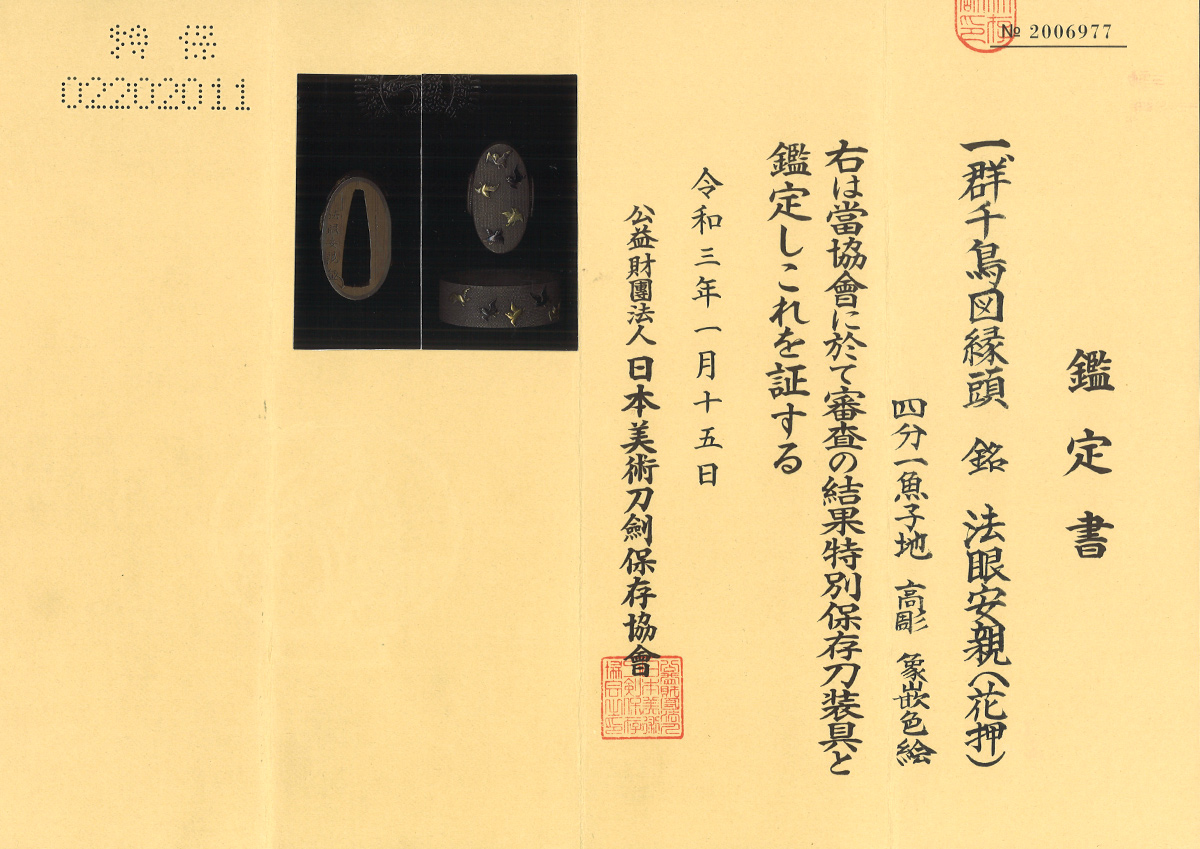 № 2006977
鑑定書
一、群千鳥図縁頭 銘 法眼安親(花押)
四分一魚子地 高彫 象嵌色絵
右は當協會に於て審査の結果特別保存刀装具と
鑑定しこれを証する
令和三年一月十五日
公益財團法人 日本美術刀劍保存協會
特 保
02202011